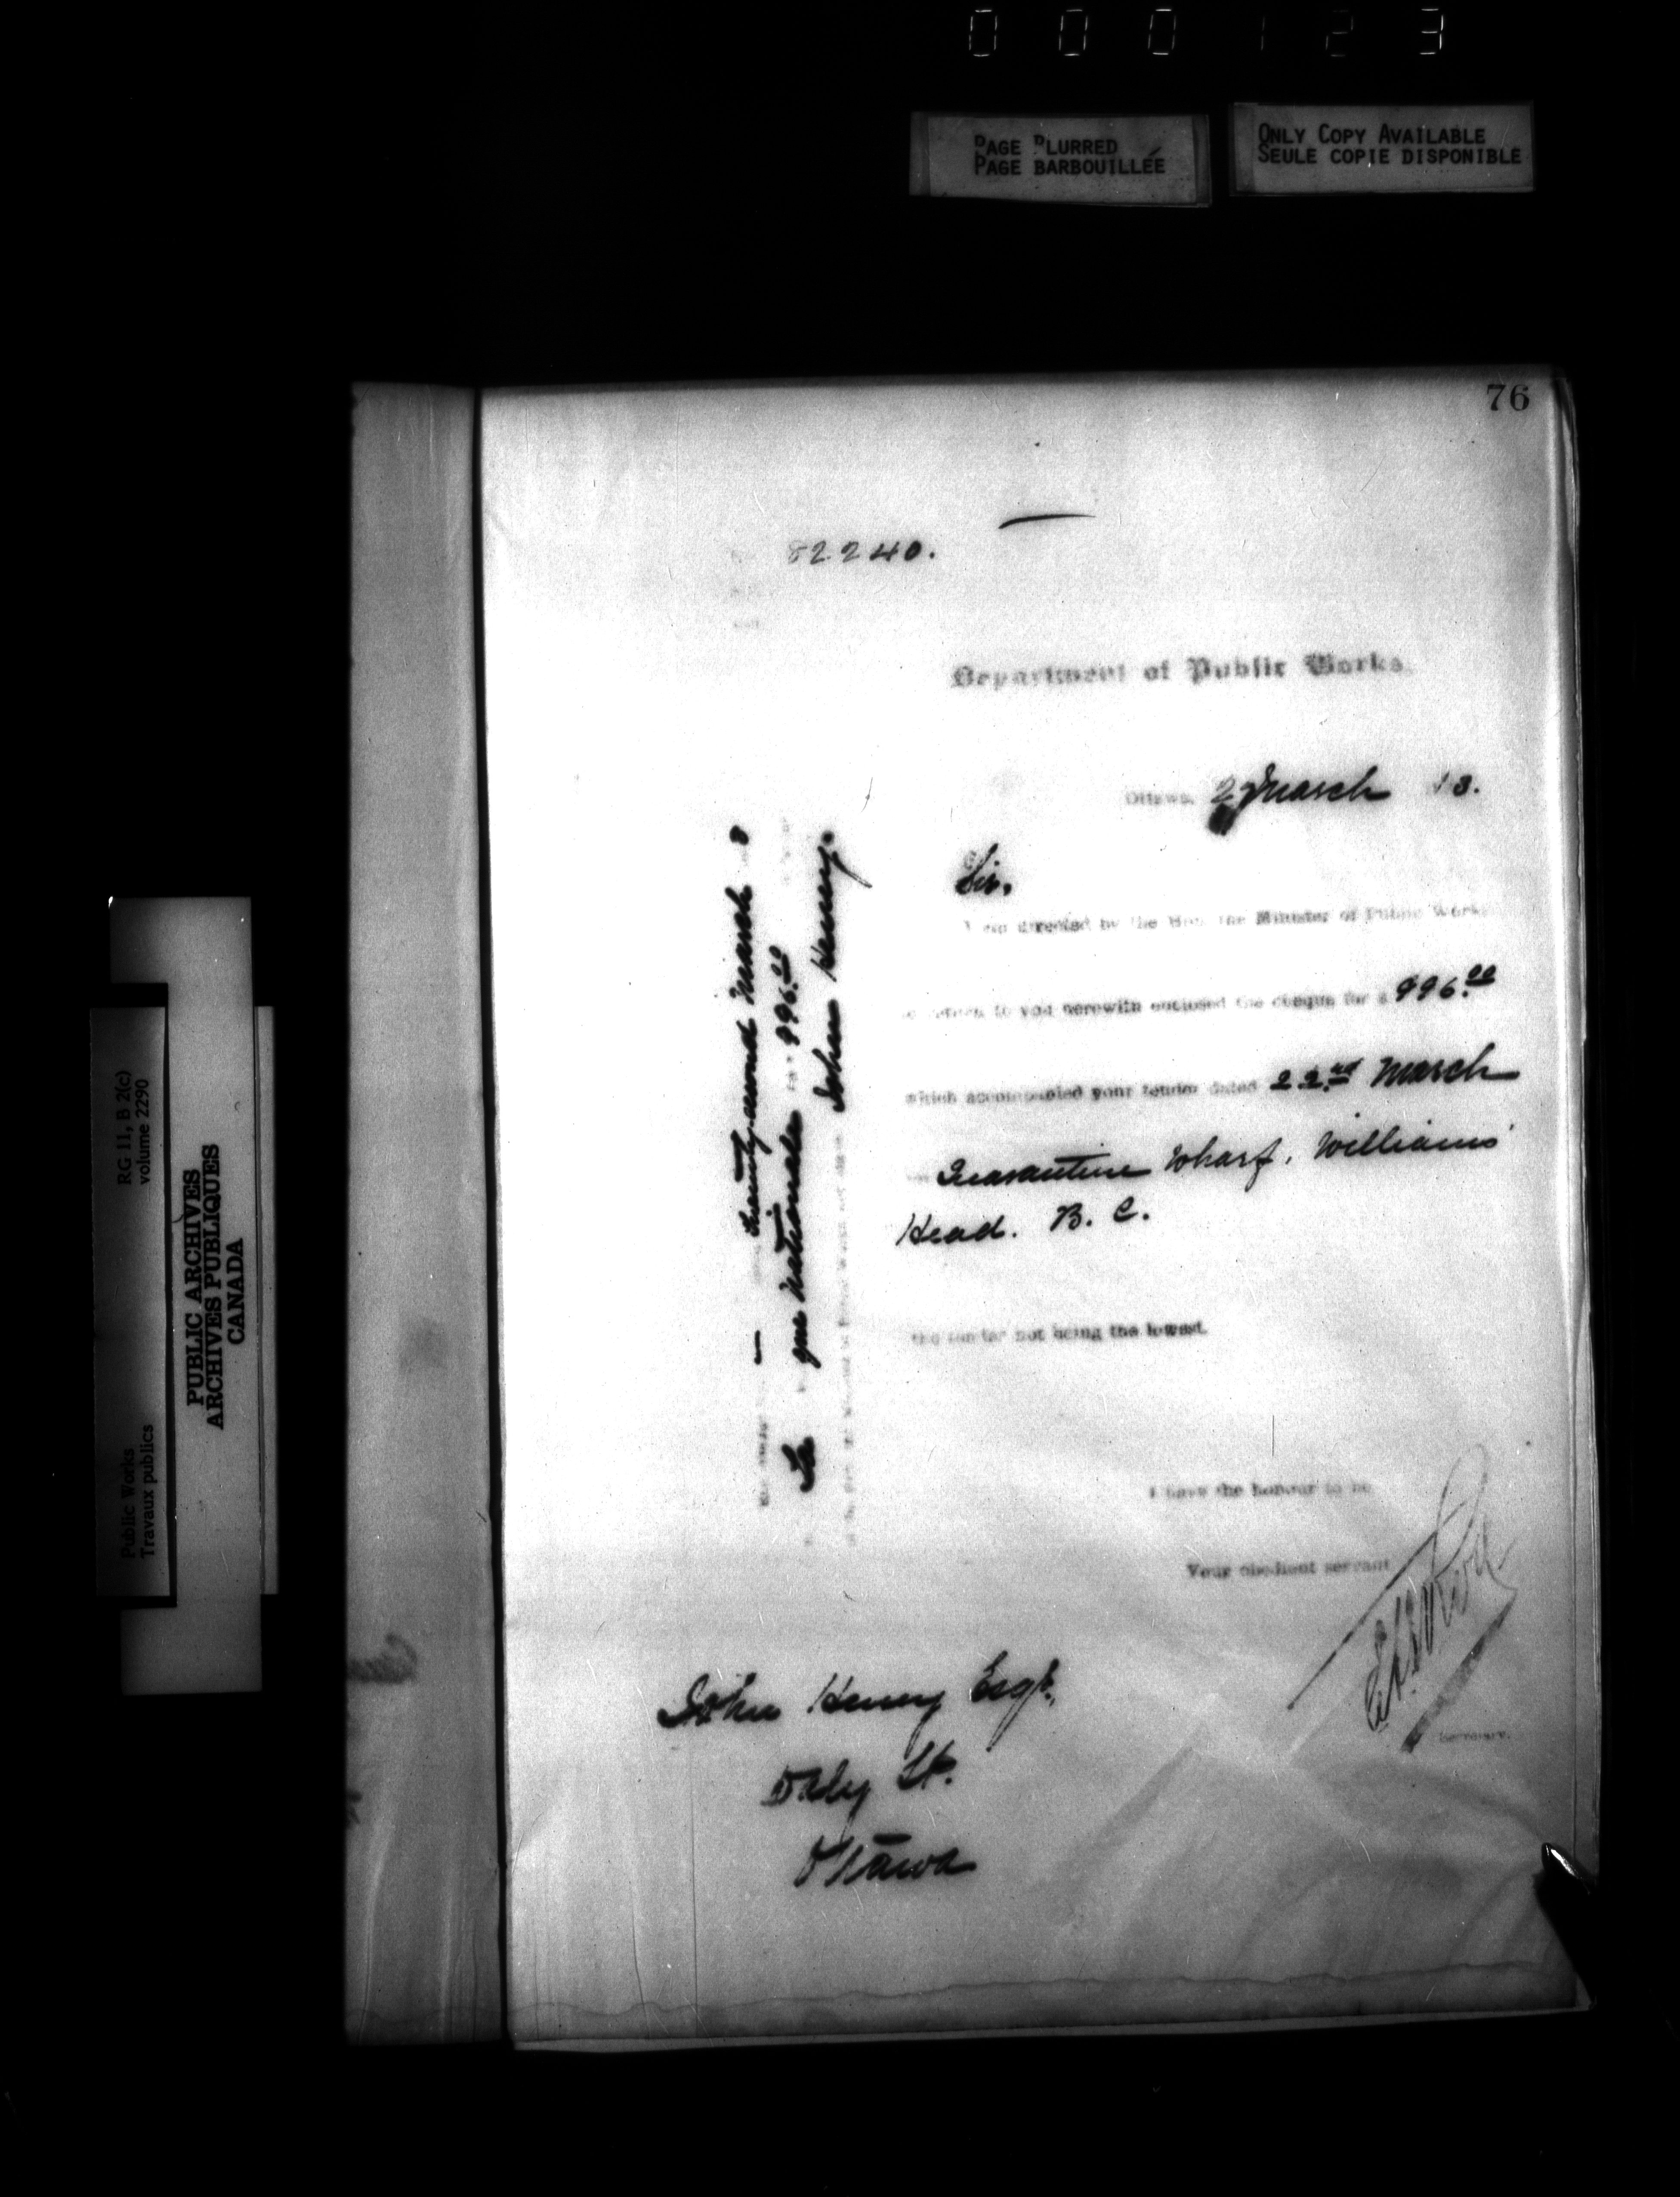 000123
PAGE BLURRED
PAGE BARBOUILLÉE
ONLY COPY AVAILABLE
SEULE COPIE DISPONIBLE
76
82240.
Department of Public Works
Ottawa, March 3.
Sir,
I am directed by the Hon. the Minister of Public Works
to return to you herewith enclosed the cheque for $ 996.00
which accompanied your tender dated 22nd March
Quarantine Wharf, Williams'
Head. B. C.
the tender not being the lowest.
I have the honour to be
Your obedient servant
Secretary.
John Henry Esqr.
Daly St.
Ottawa
twenty-second March 3
La que Nationale 996.00
John Henry.
RG 11, B 2(c)
volume 2290
Public Works
Travaux publics
PUBLIC ARCHIVES
ARCHIVES PUBLIQUES
CANADA